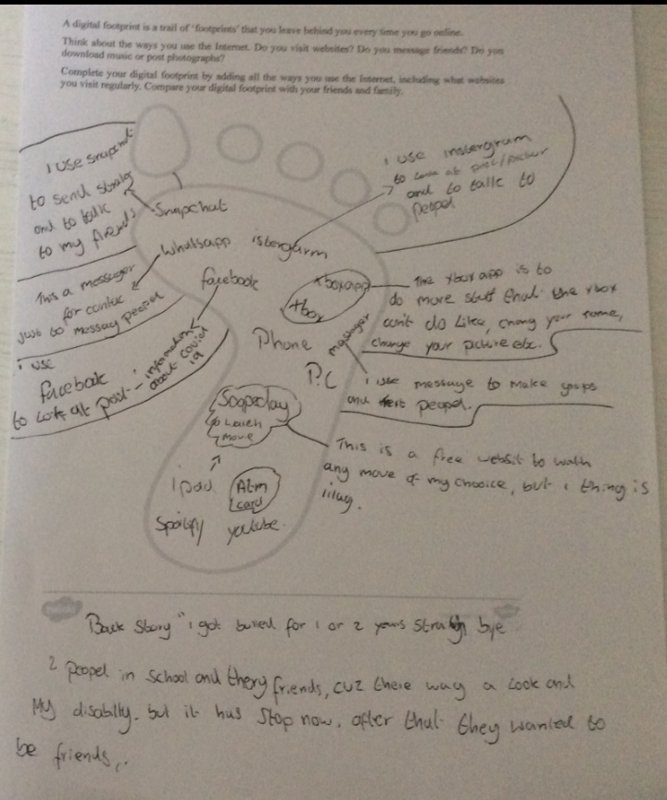 A digital footprint is a trail of 'footprints' that you leave behind you every time you go online.
Think about the ways you use the Internet. Do you visit websites? Do you message friends? Do you
download music or post photographs?
Complete your digital footprint by adding all the ways you use the Internet, including what websites
you visit regularly. Compare your digital footprint with your friends and family.
i use snapchat
to send
and to talk
to my friends
Snapchat
i use instergrum
to look at post/pictur
and to talk to
peopel
Whatsapp
istergurm
This a messuger
for
just to messay peopel
facebook
xbox app
xbox
The xbox app is to
do more stuf that the xbox
can't do like, chang your name,
change your picture etc.
i use
facebook
to look at post -
information
about covid
19
Phone
messuger
PC
i use message to make
and text peopel.
Soapzday
to watch
move
This is a free websit to wath
any move of my chooice, but i thing is
ilag.
ipad
Atm
card
Spoitify
youtube
Back story "i got buled for 1 or 2 years straigh bye
2 poopel in school and thery friends, cuz there way a look and
My disabilty. but it hus stop now. after that they wanted to
be friends,.